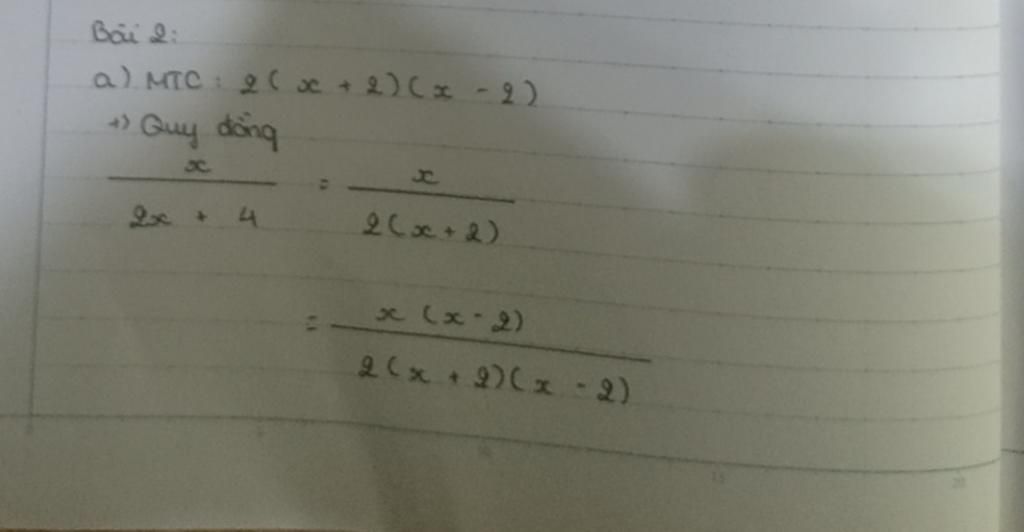 Bài 2:
a) MTC : 2(x + 2)(x - 2)
+) Quy đồng
x/(2x + 4) = x/(2(x + 2))
= x(x - 2)/(2(x + 2)(x - 2))